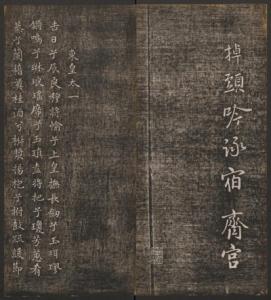 掉頭吟詠宿齊宮
東皇太一
吉日兮辰良穆將愉兮上皇撫長劍兮玉珥璆
鏘鳴兮琳琅瑤席兮玉瑱盍將把兮瓊芳蕙肴
蒸兮蘭藉奠桂酒兮椒漿揚枹兮拊鼓疏緩節